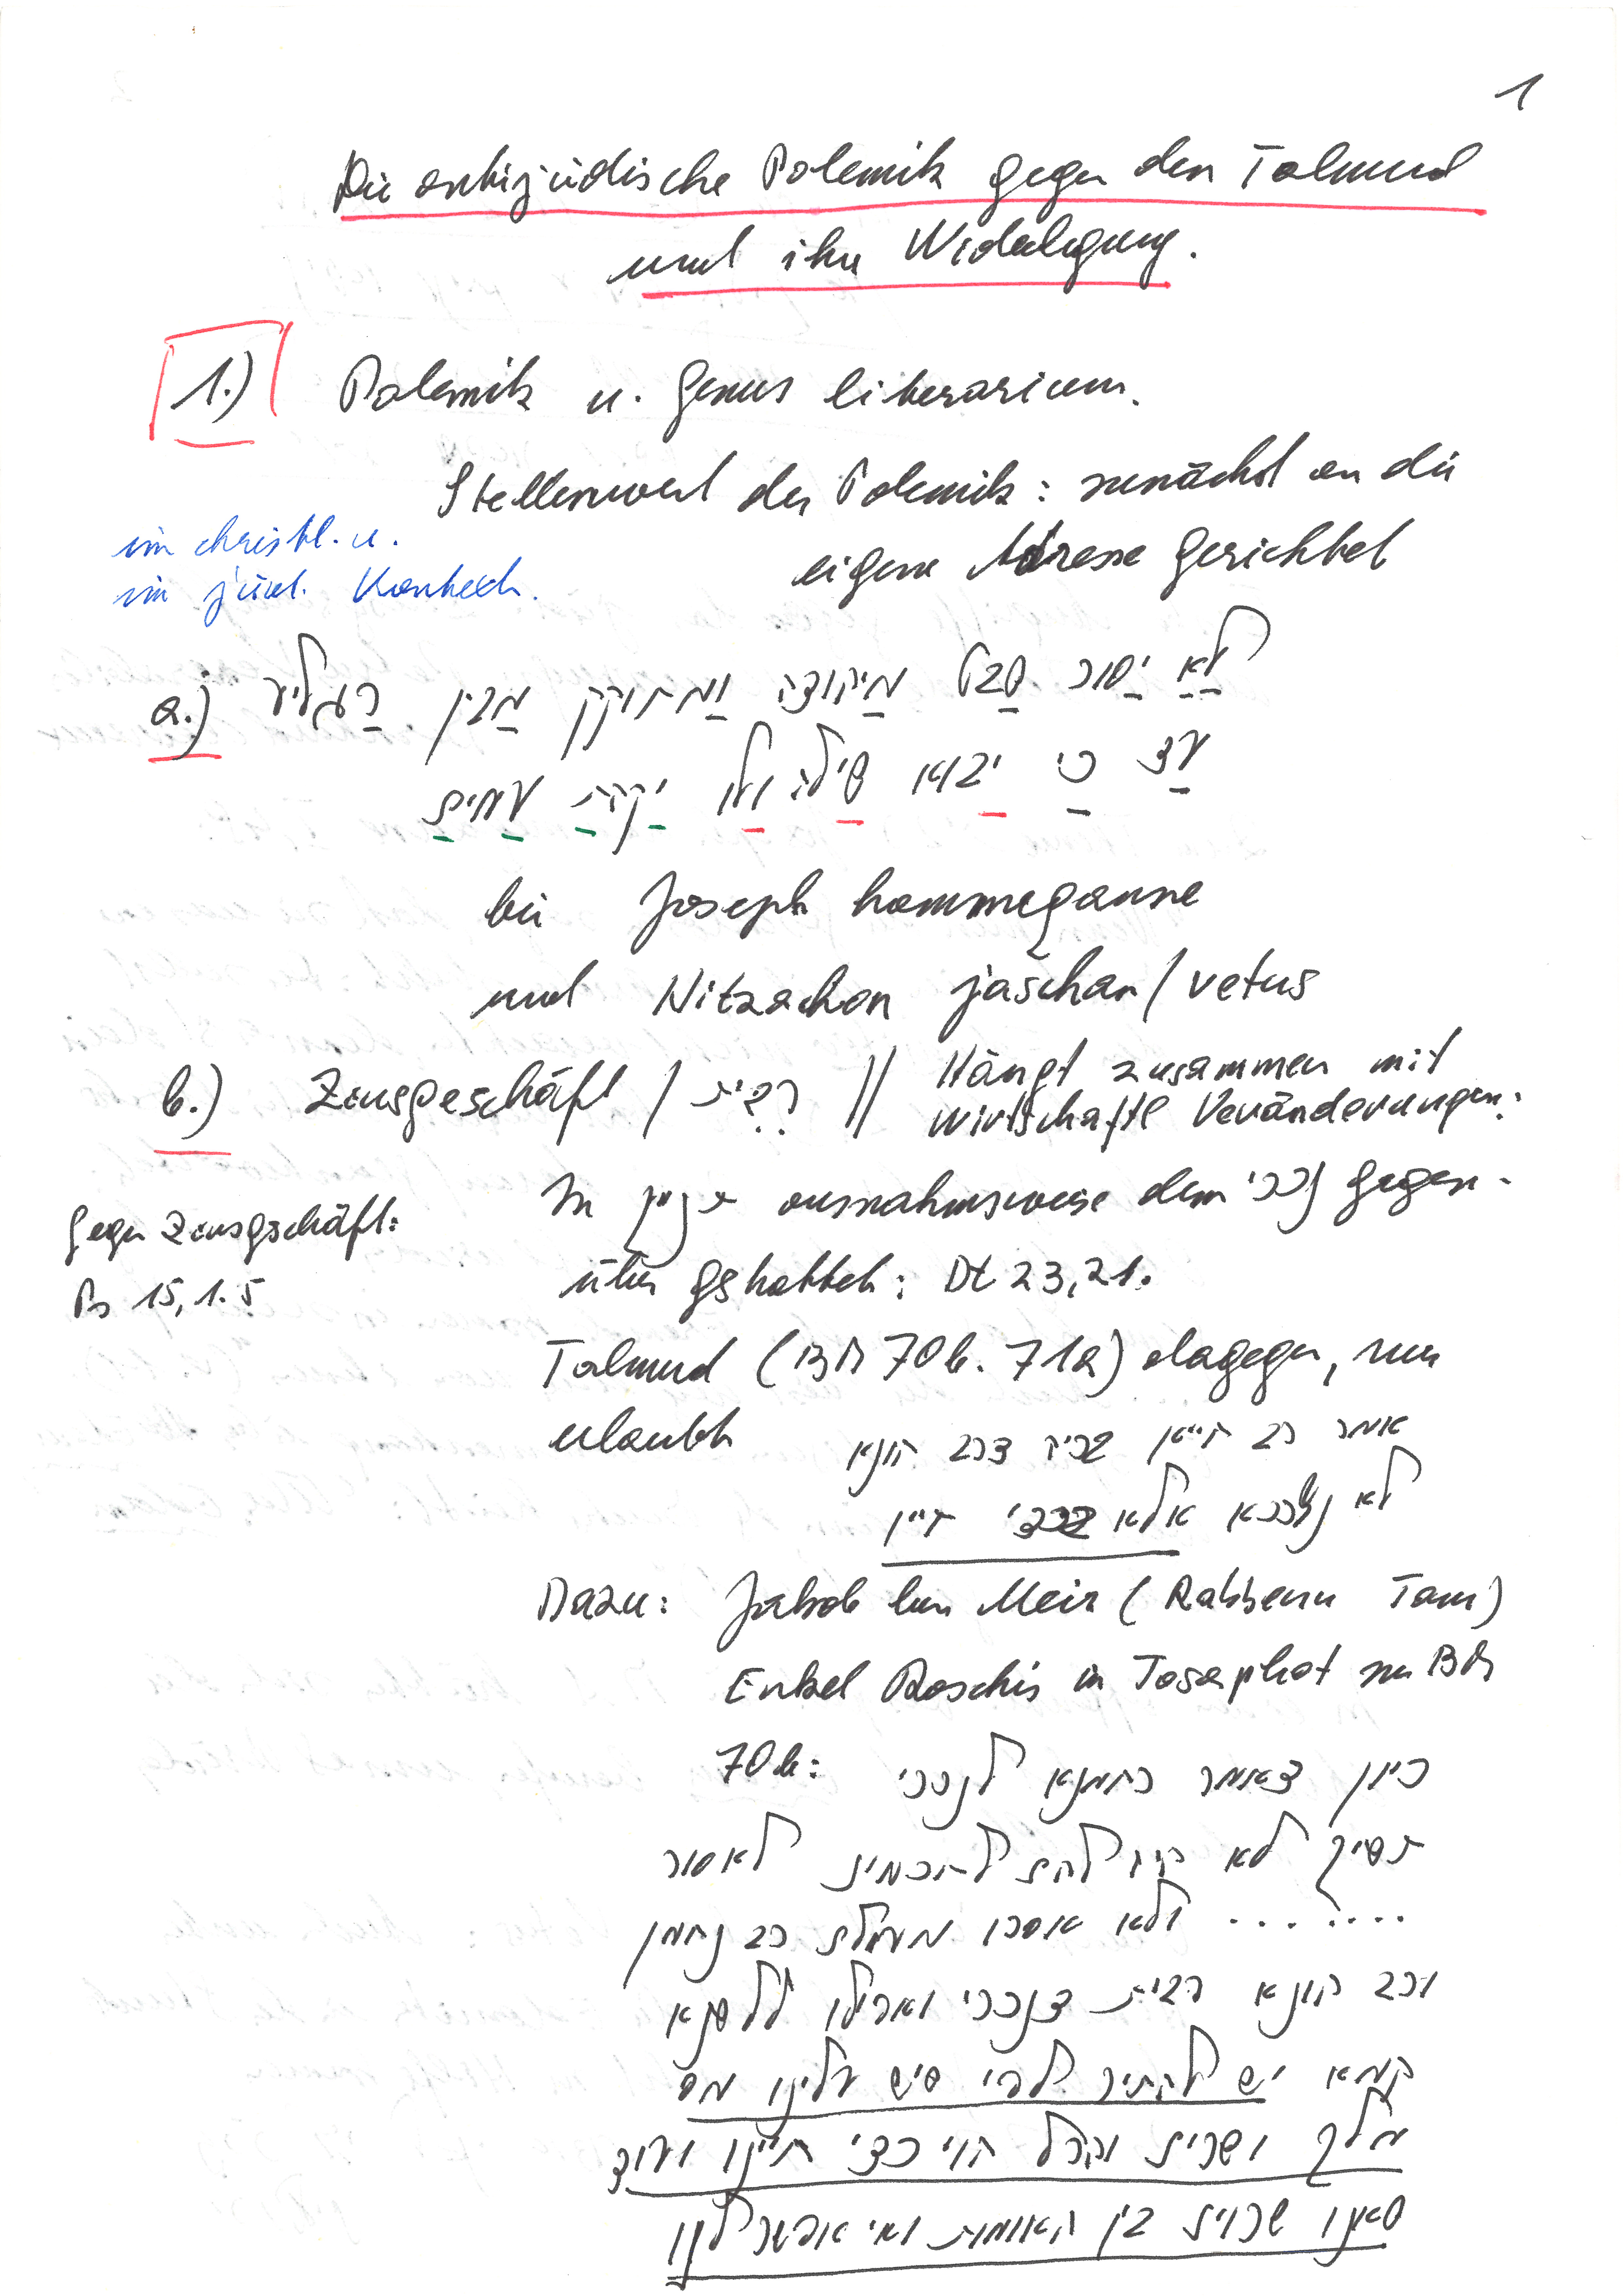 1
Die antijüdische Polemik gegen den Talmud
und ihre Widerlegung.
1.) Polemik u. Genus literarium.
Stellenwert der Polemik: zunächst an die
eigene Adresse gerichtet
im christl. u.
im jüd. Kontext.
a.) לא יסור שבט מיהודה ומחוקק מבין רגליו
עד כי יבוא שילה ולו יקהת עמים
bei Joseph hammeqanne
und Nitzachon jaschan / vetus
b.) Zinsgeschäft / רבית // Hängt zusammen mit
wirtschaftl Veränderungen:
Gegen Zinsgschäft:
Ps 15,1.5
In ausnahmsweise dem נכרי gegen-
über gstattet: Dt 23,21.
Talmud (BM 70b. 71a) dagegen, nur
erlaubt אמר רב חייא בריה דרב הונא
לא נצרכא אלא בכדי חייו
Dazu: Jakob ben Meir (Rabbenu Tam)
Enkel Raschis in Tosaphot zu BM
70b: כיון דאמר רחמנא לנכרי
תשיך לא היה להם לחכמים לאסור
........ ולא אסרו מעולם רב נחמן
ורב הונא רבית דנכרי ואפילו ללשנא
קמא יש להתיר לפי שיש עלינו מס
מלך ושרים והכל הוי כדי חיינו ועוד
שאנו שרוים בין האומות ואי אפשר לנו